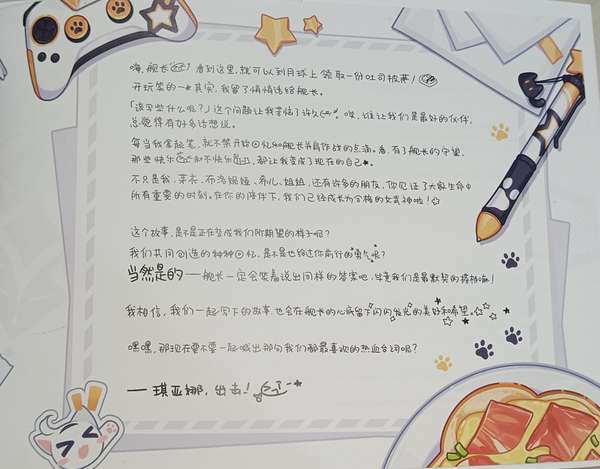 嗨，舰长 看到这里，就可以到月球上领取一份吐司披萨！
开玩笑的~★其实，我留了悄悄话给舰长。
「该写些什么呢？」这个问题让我苦恼了许久 唉，谁让我们是最好的伙伴，
总觉得有好多话想说。
每当我拿起笔，就不禁开始回忆和舰长并肩作战的点滴。看，有了舰长的守望，
那些快乐 和不快乐 ，都让我变成了现在的自己★。
不只是我，芽衣、布洛妮娅、希儿、姐姐，还有许多的朋友，你见证了大家生命中
所有重要的时刻。在你的陪伴下，我们已经成长为合格的女武神啦！
这个故事，是不是正在变成我们所期望的样子呢？
我们共同创造的种种回忆，是不是也给过你前行的勇气呢？
当然是的——舰长一定会笑着说出同样的答案吧，毕竟我们是最默契的搭档嘛！
我相信，我们一起写下的故事，也会在舰长的心底留下闪闪发光的美好和希望。
嘿嘿，那现在要不要一起喊出那句我们都最喜欢的热血台词呢？
——琪亚娜，出击！